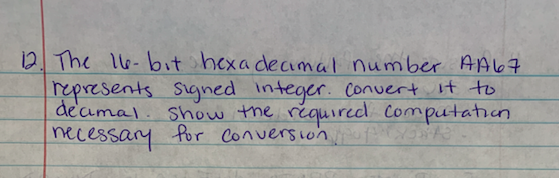 12. The 16-bit hexadecimal number AA67
represents signed integer. convert it to
decimal. show the required computation
necessary for conversion